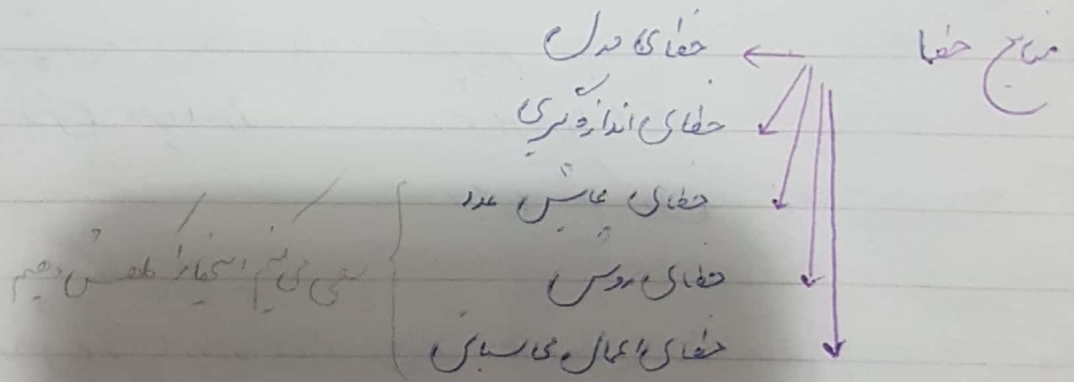 منابع خطا
خطای مدل
خطای اندازه گیری
خطای نمایش عدد
خطای روش
خطای اعمال محاسباتی
سعی می کنیم اینها را کاهش دهیم